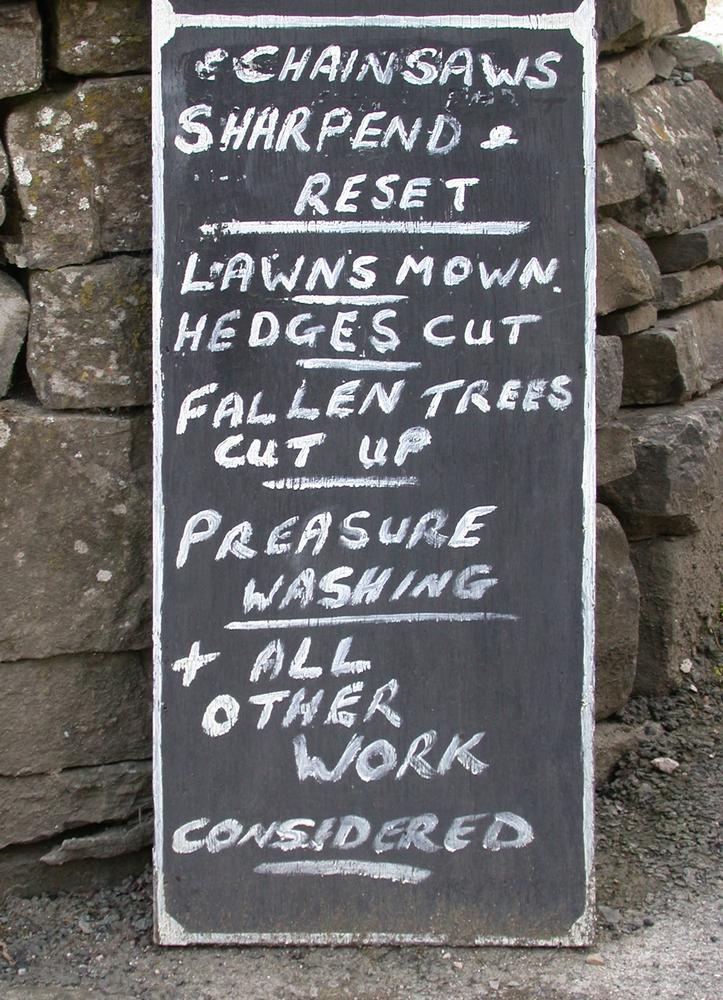 & CHAINSAWS
SHARPEND &
RESET
LAWNS MOWN.
HEDGES CUT
FALLEN TREES
CUT UP
PREASURE
WASHING
+ ALL
OTHER
WORK
CONSIDERED